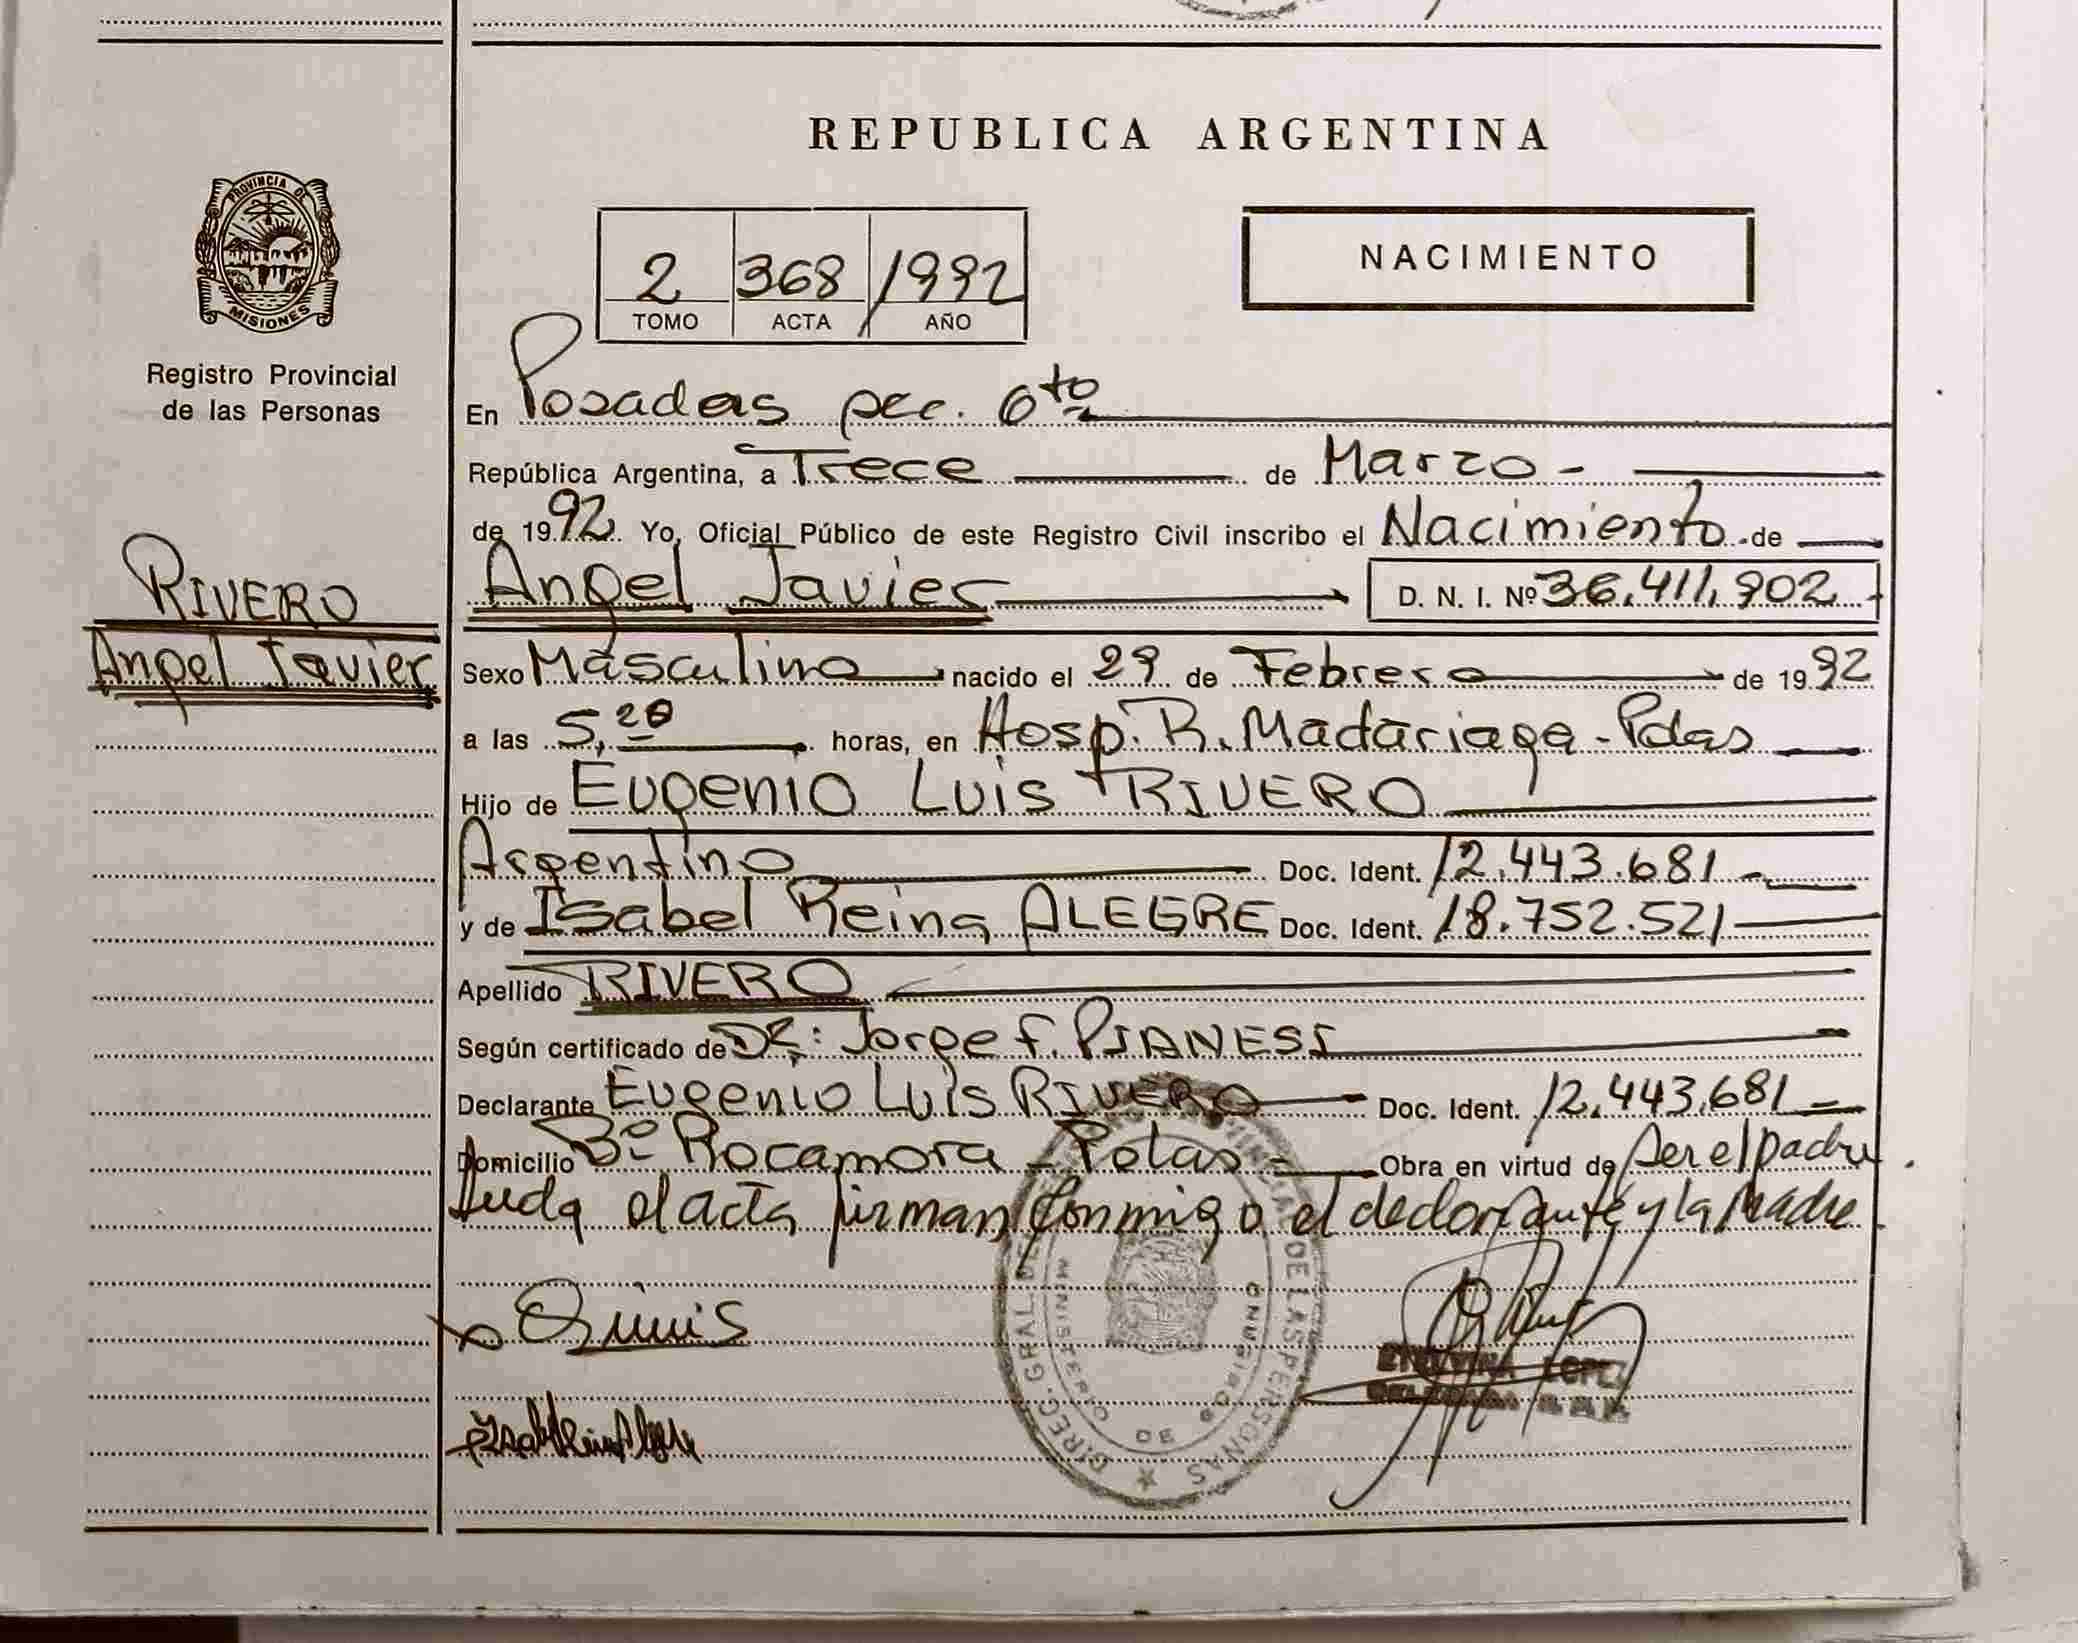 REPUBLICA ARGENTINA
PROVINCIA DE
MISIONES
Registro Provincial
de las Personas
2 368 1992
TOMO ACTA AÑO
NACIMIENTO
En Posadas sec. 6to
República Argentina, a Trece de Marzo -
de 1992. Yo, Oficial Público de este Registro Civil inscribo el Nacimiento de
RIVERO
Angel Javier
Angel Javier D. N. I. Nº 36.411.902
Sexo Masculino nacido el 29 de Febrero de 1992
a las 5,20 horas, en Hosp. R. Madariaga - Pdas
Hijo de Eugenio Luis RIVERO
Argentino Doc. Ident. 12.443.681
y de Isabel Reina ALEGRE Doc. Ident. 18.752.521
Apellido RIVERO
Según certificado de Dr: Jorge F. PIANESI
Declarante Eugenio Luis RIVERO Doc. Ident. 12.443.681
Domicilio Bº Rocamora - Pdas - Obra en virtud de ser el padre.
Leida el acta firman conmigo el declarante y la Madre.
DIREC. GRAL. DE LAS PERSONAS
MINISTERIO DE GOBIERNO
LOPEZ
DELEGADA